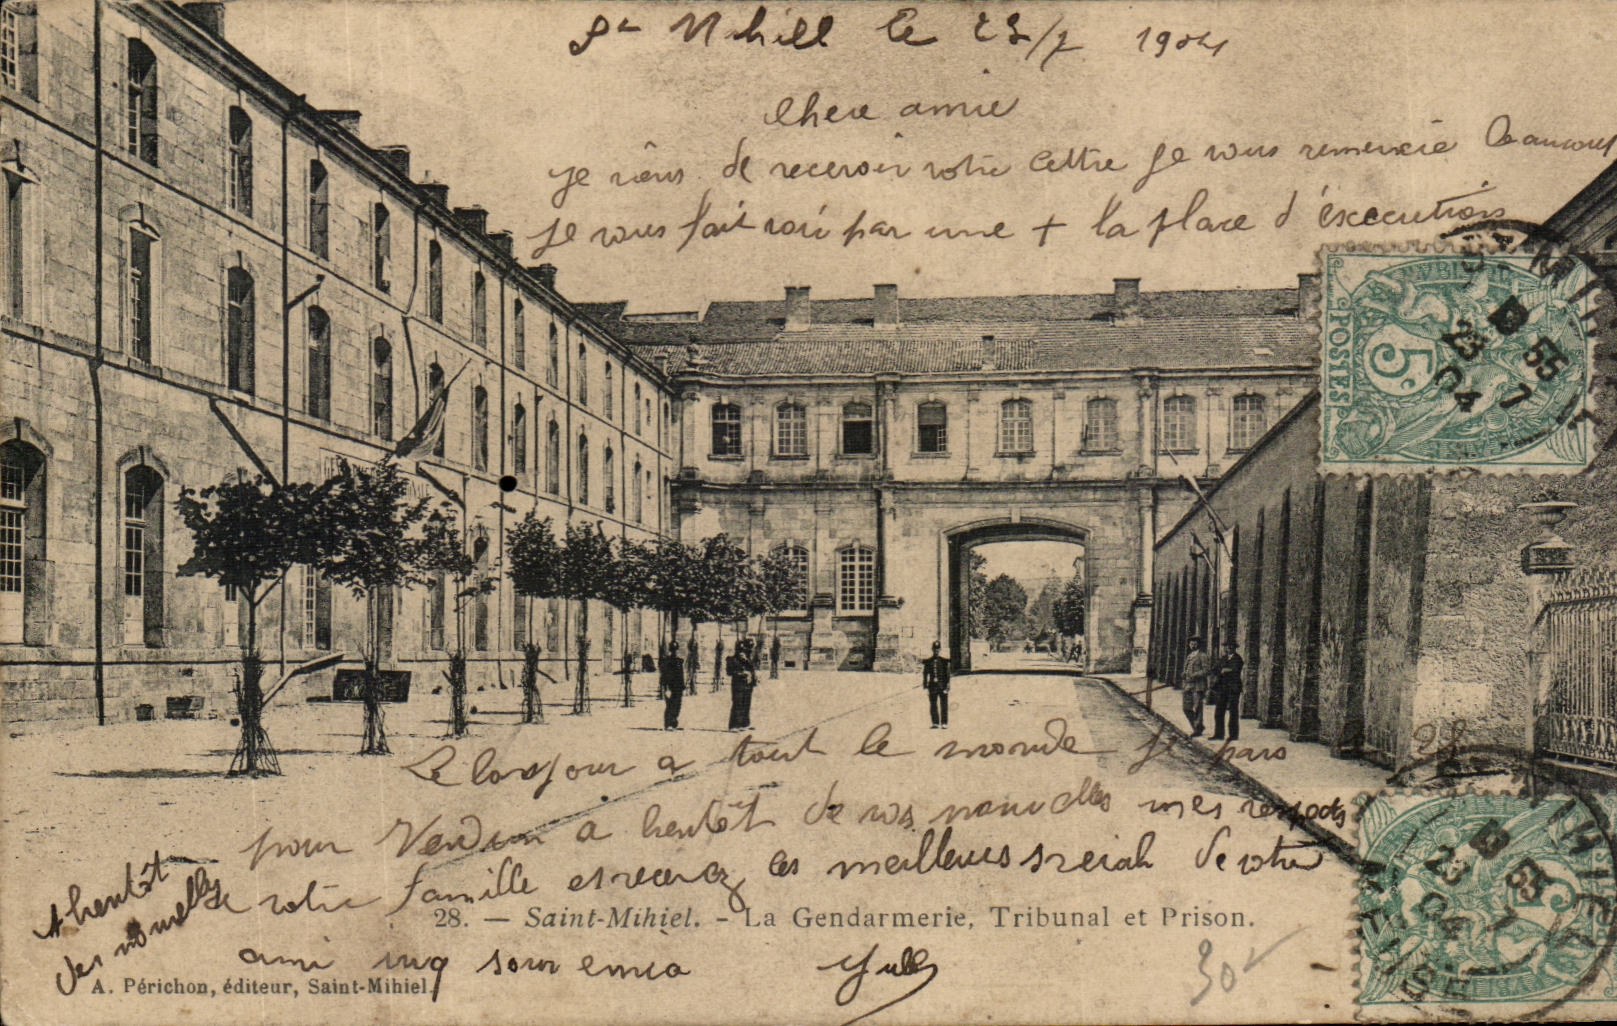 St Mihill le 23/7 1904
Chere amie
je viens de recevoir votre lettre je vous remercie beaucoup
je vous fait voir par une + la place d'éxecutions
Le bonjour a tout le monde je pars le 28
pour Verdun a bentôt de vos nouvelles mes respects
de votre famille et recevez les meilleurs de votre
A bentôt
des nouvelles
ami
28. — Saint-Mihiel. - La Gendarmerie, Tribunal et Prison.
A. Périchon, éditeur, Saint-Mihiel.
POSTES
5c
ST MIHIEL
MEUSE
13 55
23 7
04
POSTES
5c
ST MIHIEL
MEUSE
13 55
23 7
04